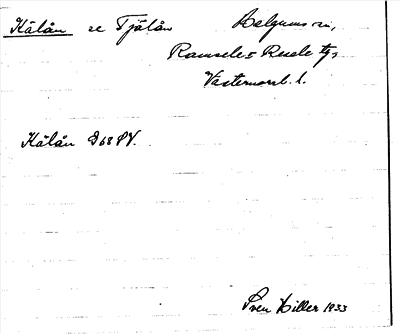 Kälån se Tjälån Helgums sn,
Ramsele o Resele tg
Västernorrl. l.
Kälån D 68 SV.
Sven Hiller 1933